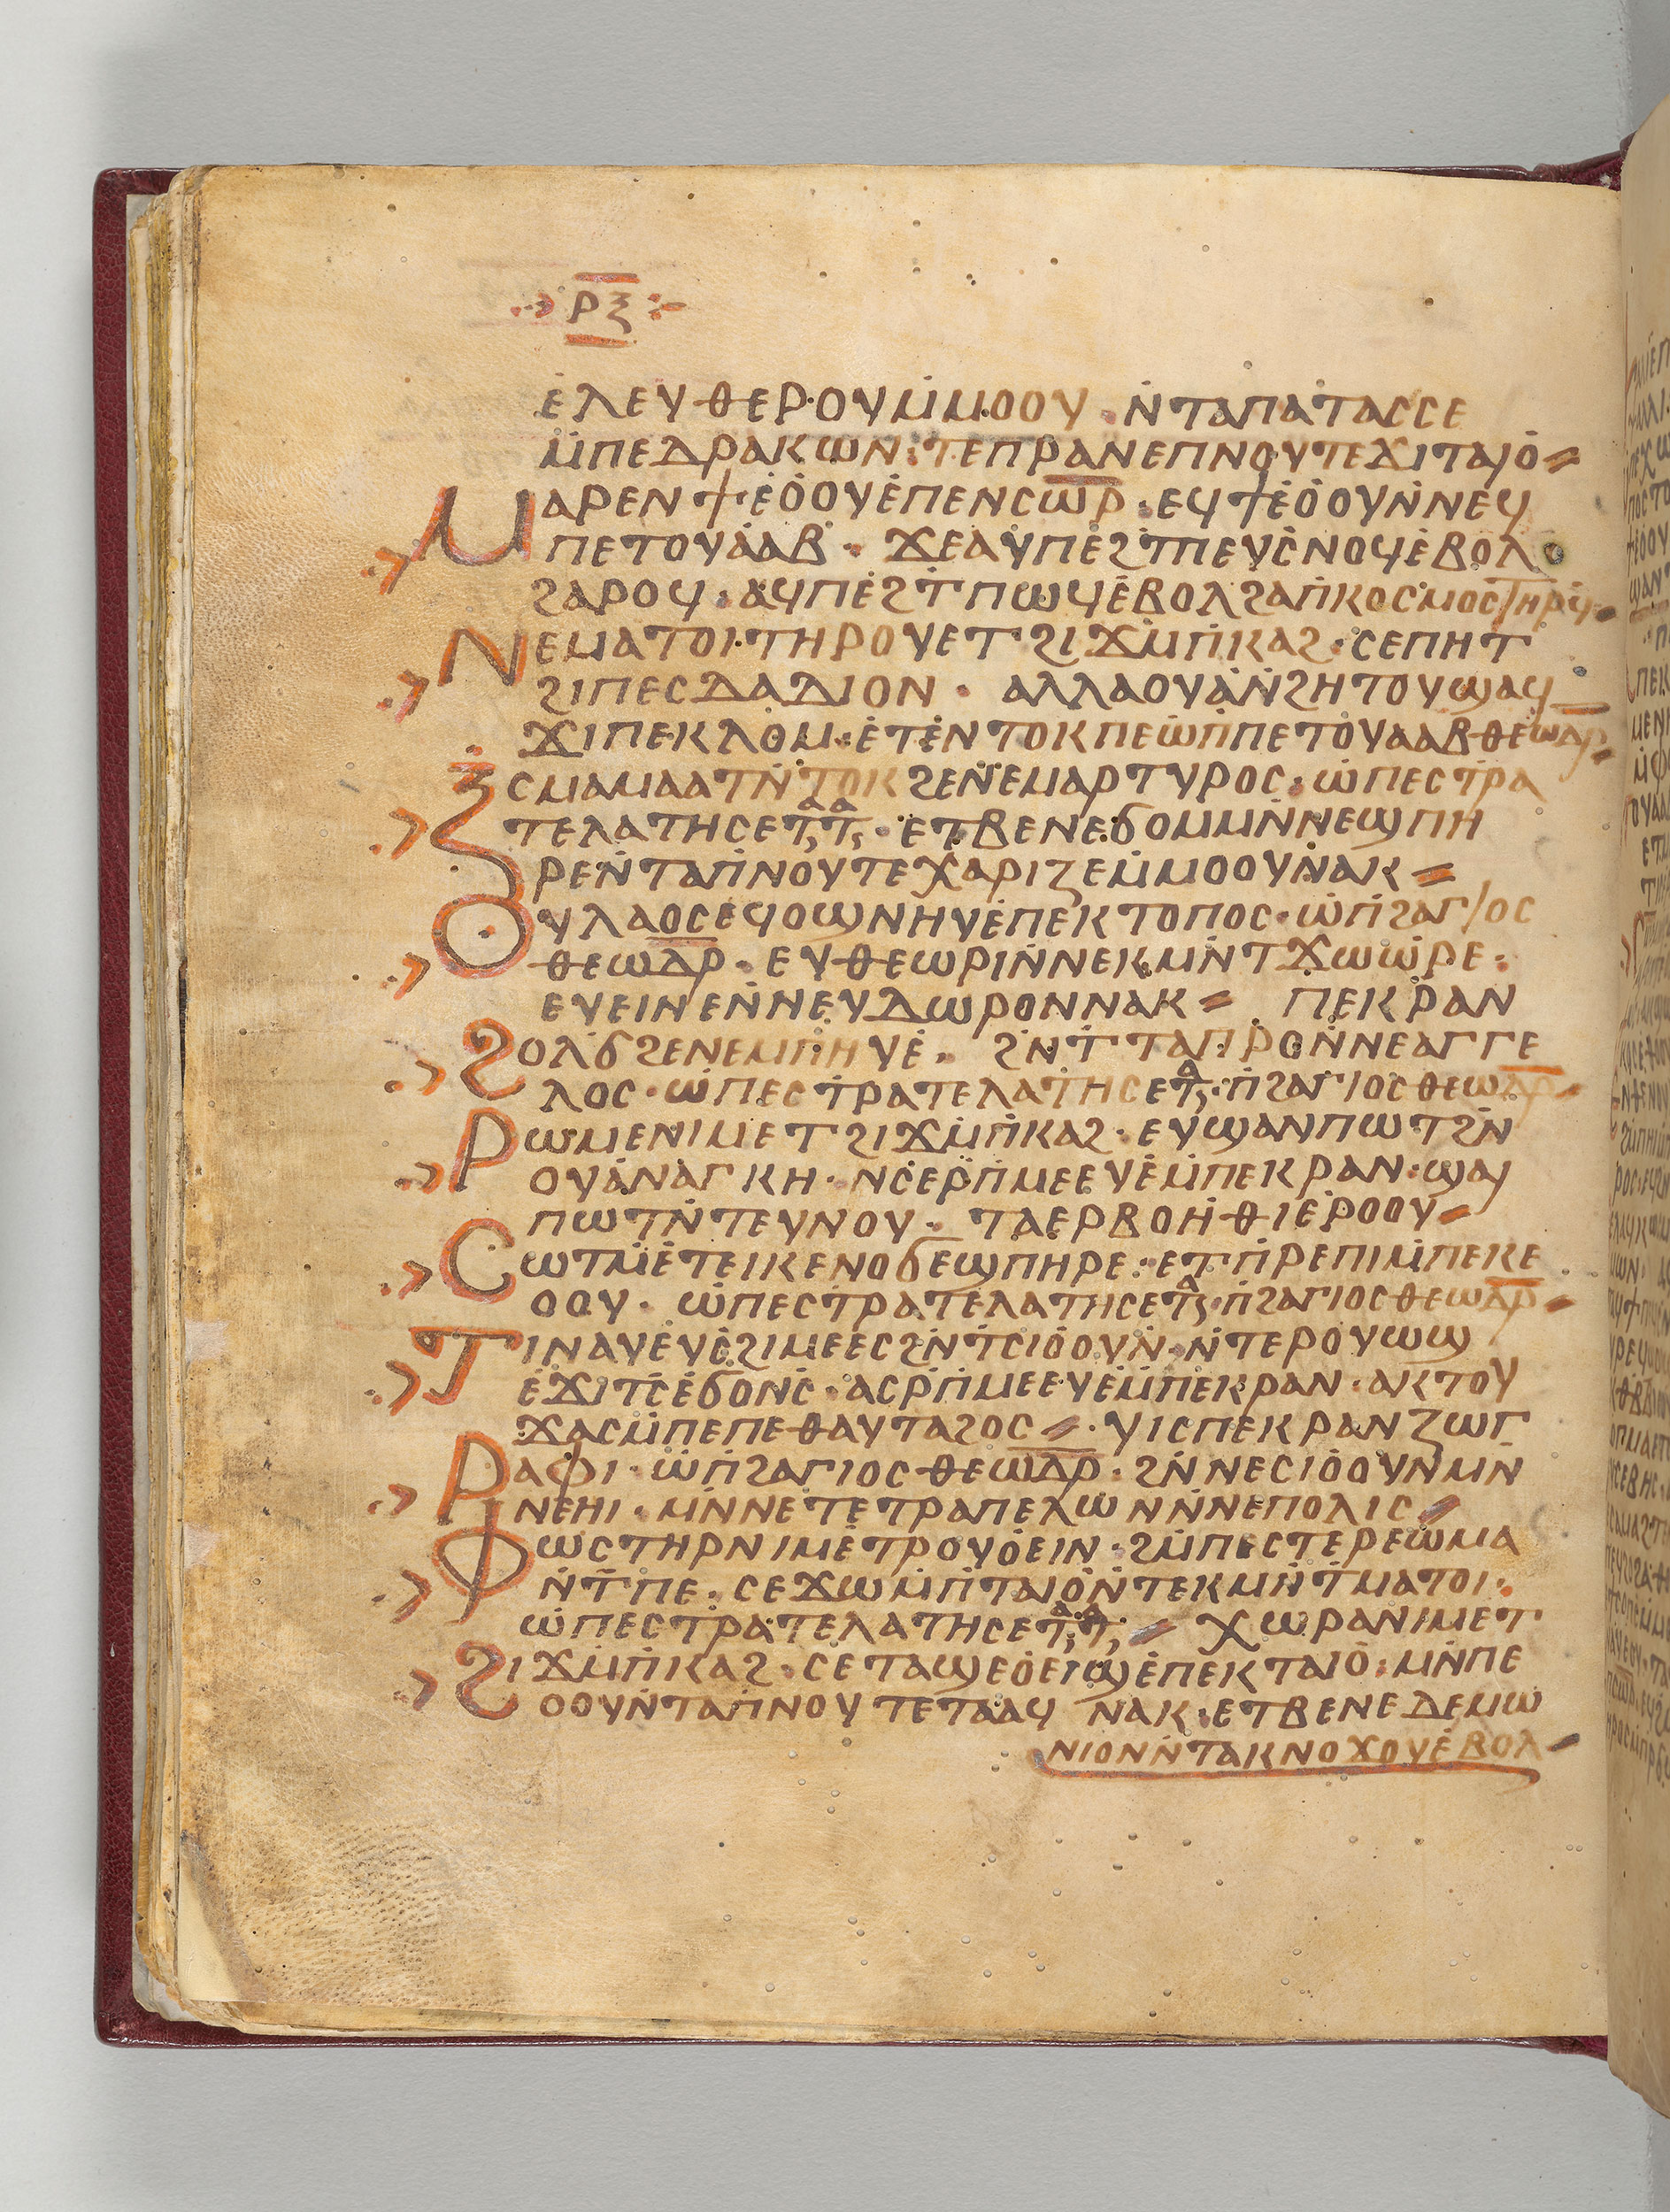 ⲣⲝ
ⲉ̇ⲗⲉⲩⲑⲉⲣⲟⲩⲙ̇ⲙⲟⲟⲩ · ⲛ̇ⲧⲁⲡⲁ̇ⲧⲁⲥⲥⲉ
ⲙ̇ⲡⲉⲇⲣⲁⲕⲱⲛ · ⲧⲉⲡⲣⲁⲛⲉⲡⲛⲟⲩⲧⲉϫⲓⲧⲁⲓⲟ̇ ⸗
ⲙⲁⲣⲉⲛϯⲉ̇ⲟ̇ⲟⲩⲉ̇ⲡⲉⲛⲥⲱ̅ⲣ̅ · ⲉϥϯⲉ̇ⲟ̇ⲟⲩⲛ̇ⲛⲉϥ
ⲡⲉⲧⲟⲩⲁ̇ⲁⲃ · ϫⲉⲁⲩⲡⲉϩ̇ⲧⲡⲉⲩⲥ̇ⲛⲟϥⲉ̇ⲃⲟⲗ
ϩⲁⲣⲟϥ · ⲁϥⲡⲉ̇ϩⲧ̇ⲡⲱϥⲉ̇ⲃⲟⲗϩⲁⲡ̇ⲕⲟⲥⲙⲟⲥⲧⲏⲣϥ̇
ⲛⲉⲙⲁⲧⲟⲓ·ⲧⲏⲣⲟⲩⲉⲧϩⲓϫⲙ̇ⲡ̇ⲕⲁϩ · ⲥⲉⲡⲏⲧ
ϩⲓⲡⲉⲥⲇⲁⲇⲓⲟⲛ · ⲁⲗⲗⲁⲟⲩⲁ̇ⲛ̇ϩⲏⲧⲟⲩϣⲁϥ
ϫⲓⲡⲉⲕⲗⲟⲙ · ⲉ̇ⲧⲉ̇ⲛⲧⲟⲕⲡⲉⲱ̇ⲡ̇ⲡⲉⲧⲟ̇ⲩⲁⲁⲃⲑⲉⲱ̅ⲇ̅ⲣ̅
ⲝⲥⲙⲁⲙⲁⲁⲧⲛ̇ⲧⲟⲕϩⲉⲛ̇ⲉⲙⲁⲣⲧⲩⲣⲟⲥ · ⲱ̇ⲡⲉⲥⲧⲣⲁ
ⲧⲉⲗⲁⲧⲏⲥⲉⲧ̅ⲁ̅ⲧ̅ⲁ̅ · ⲉⲧⲃⲉⲛⲉϭⲟⲙⲙⲛ̇ⲛⲉϣⲡⲏ
ⲣⲉⲛ̇ⲧⲁⲡ̇ⲛⲟⲩⲧⲉⲭⲁⲣⲓⲍⲉⲙ̇ⲙⲟⲟⲩⲛⲁⲕ ⸗
ⲟⲩⲗⲁⲟⲥⲉϥⲟϣⲛⲏⲩⲉ̇ⲡⲉⲕⲧⲟⲡⲟⲥ · ⲱ̇ⲡ̇ϩⲁⲅⲓⲟⲥ
ⲑⲉⲱ̅ⲇ̅ⲣ̅ · ⲉⲩⲑⲉⲱⲣⲓⲛ̇ⲛⲉⲕⲙⲛ̇ⲧϫⲱⲱ̇ⲣⲉ ·
ⲉⲩⲉⲓⲛⲉⲛ̇ⲛⲉⲩⲇⲱⲣⲟⲛⲛⲁⲕ ⸗ ⲡⲉⲕⲣⲁⲛ
ϩⲟⲗϭϩⲉⲛⲉⲙⲡⲏⲩⲉ̇ · ϩⲛ̇ⲧ̇ⲧⲁⲡⲣⲟⲛ̇ⲛⲉⲁⲅⲅⲉ
ⲗⲟⲥ · ⲱ̇ⲡⲉⲥⲧⲣⲁⲧⲉⲗⲁⲧⲏⲥⲉⲧ̅ⲁ̅ · ⲡ̇ϩⲁⲅⲓⲟⲥⲑⲉⲱ̅ⲇ̅ⲣ̅ ⸗
ⲣⲱⲙⲉⲛⲓⲙⲉⲧϩⲓϫⲙ̇ⲡ̇ⲕⲁϩ · ⲉⲩϣⲁⲛⲡⲱⲧϩⲛ̇
ⲟⲩⲁ̇ⲛⲁⲅⲕⲏ · ⲛⲥ̇ⲉⲣ̇ⲡ̇ⲙⲉⲉⲩⲉ̇ⲙ̇ⲡⲉⲕⲣⲁⲛ · ϣⲁⲓ
ⲡⲱⲧⲛ̇ⲧⲉⲩⲛⲟⲩ · ⲧⲁⲉⲣⲃⲟⲏ̇ⲑⲓⲉ̇ⲣⲟⲟⲩ ⸗
ⲥⲱⲧⲙ̇ⲉ̇ⲧⲉⲓⲕⲉⲛⲟϭⲉϣⲡⲏⲣⲉ · ⲉⲧⲡ̇ⲣⲉⲡⲓⲙ̇ⲡⲉⲕⲉ
ⲟⲟⲩ · ⲱ̇ⲡⲉⲥⲧⲣⲁⲧⲉⲗⲁⲧⲏⲥⲉⲧ̅ⲁ̅ · ⲡ̇ϩⲁⲅⲓⲟⲥⲑⲉⲱ̅ⲇ̅ⲣ̅ ⸗
ⲧⲓⲛⲁⲩⲉ̇ⲩⲥ̇ϩⲓⲙⲉⲉⲥϩⲛ̇ⲧ̇ⲥⲓⲟ̇ⲟⲩⲛ̇ · ⲛ̇ⲧⲉⲣⲟⲩⲱϣ
ⲉ̇ϫⲓⲧⲥ̇ⲉ̇ϭⲟⲛⲥ̇ · ⲁⲥⲣ̇ⲡ̇ⲙⲉⲉⲩⲉ̇ⲙ̇ⲡⲉⲕⲣⲁⲛ · ⲁⲕⲧⲟⲩ
ϫⲁⲥⲙ̇ⲡⲉⲡⲉⲑⲁⲩⲧⲁϩⲟⲥ ⸗ · ⲩⲓⲥⲡⲉⲕⲣⲁⲛⲍⲱⲅ
ⲣⲁⲫⲓ · ⲱ̇ⲡ̇ϩⲁⲅⲓⲟⲥⲑⲉⲱ̅ⲇ̅ⲣ̅ · ϩⲛ̇ⲛⲉⲥⲓⲟ̇ⲟⲩⲛⲙⲛ
ⲛⲉⲏⲓ · ⲙⲛ̇ⲛⲉⲧⲉⲧⲣⲁⲡⲉⲗⲱⲛⲛ̇ⲛⲉⲡⲟⲗⲓⲥ ⸗
ⲫⲱⲥⲧⲏⲣⲛⲓⲙⲉ̇ⲧⲣⲟⲩⲟ̇ⲉⲓⲛ · ϩⲙ̇ⲡⲉⲥⲧⲉⲣⲉⲱⲙⲁ
ⲛ̇ⲧ̇ⲡⲉ · ⲥⲉϫⲱⲙ̇ⲡ̇ⲧⲁⲓⲟ̇ⲛ̇ⲧⲉⲕⲙⲛ̇ⲧ̇ⲙⲁⲧⲟⲓ ·
ⲱ̇ⲡⲉⲥⲧⲣⲁⲧⲉⲗⲁⲧⲏⲥⲉⲧ̅ⲁ̅ⲧ̅ⲁ̅ ⸗ ⲭⲱⲣⲁⲛⲓⲙⲉⲧ
ϩⲓϫⲙ̇ⲡ̇ⲕⲁϩ · ⲥⲉⲧⲁϣⲉⲟ̇ⲉⲓϣⲉ̇ⲡⲉⲕⲧⲁⲓⲟ̇ · ⲙⲛ̇ⲡⲉ
ⲟⲟⲩⲛ̇ⲧⲁⲡ̇ⲛⲟⲩⲧⲉⲧⲁⲁϥ ⲛⲁⲕ · ⲉⲧⲃⲉⲛⲉⲇⲉⲙⲱ
ⲛⲓⲟⲛⲛ̇ⲧⲁⲕⲛⲟϫⲟⲩⲉ̇ⲃⲟⲗ ⸗